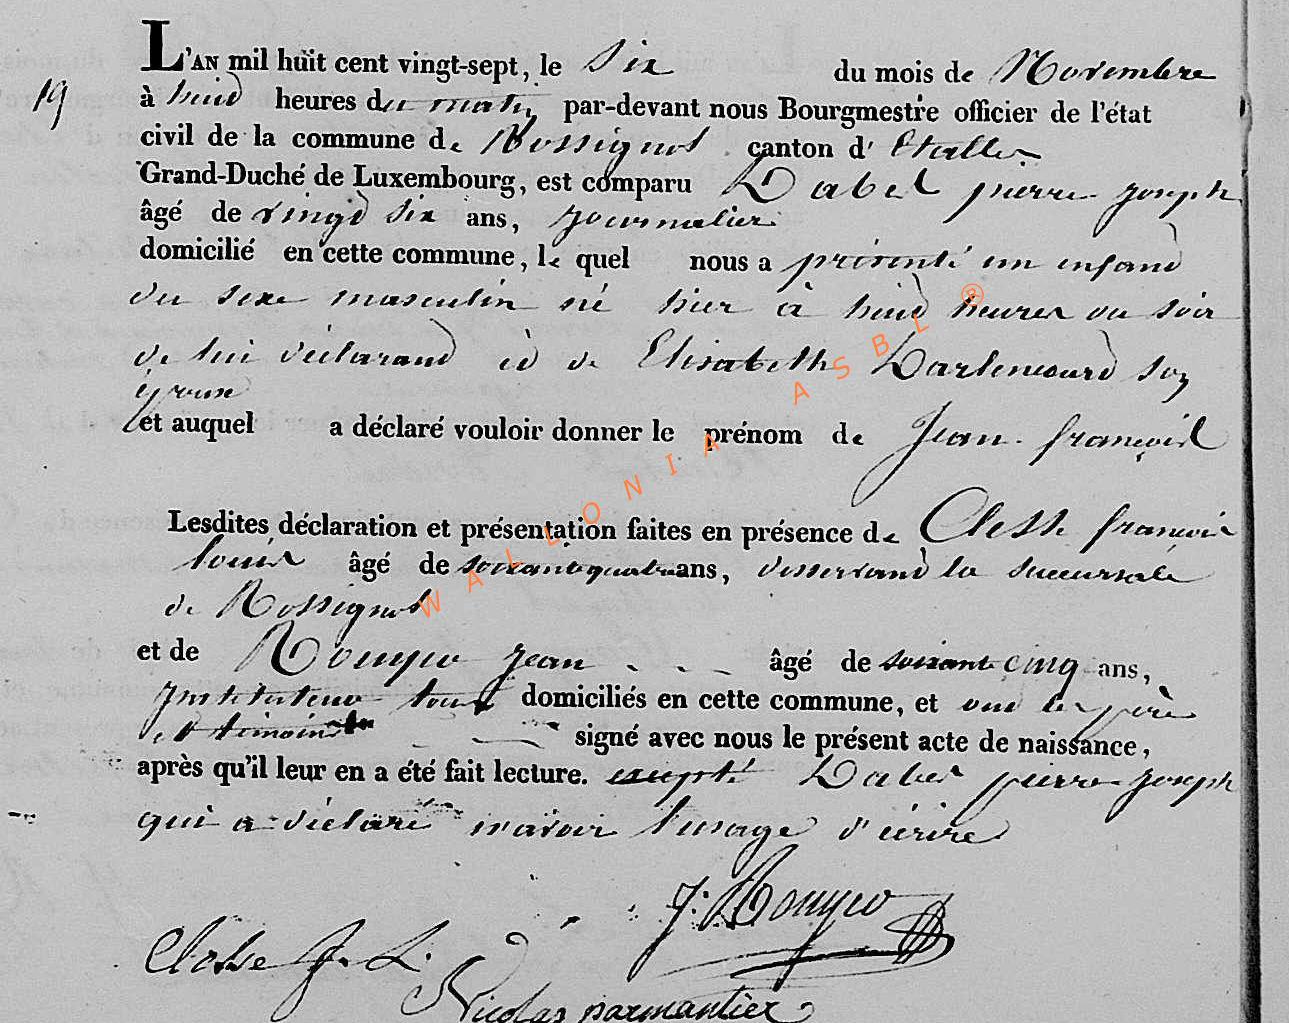 19
L'AN mil huit cent vingt-sept, le Six du mois de Novembre
à huid heures du matin par-devant nous Bourgmestre officier de l'état
civil de la commune de Rossignol canton d' Etalle
Grand-Duché de Luxembourg, est comparu Label pierre joseph
âgé de vingd six ans, journalier
domicilié en cette commune, le quel nous a présenté un enfand
du sexe masculin né hier à huid heures du soir
de lui déclarand ed de Elisabeth Darlencourd son
épouse
et auquel a déclaré vouloir donner le prénom de Jean françois
Lesdites déclaration et présentation faites en présence de françois
louis âgé de soixante quatre ans, desservand la succursale
de Rossignol
et de Jean âgé de soixante cinq ans,
instituteur tous domiciliés en cette commune, et ont le père
et témoins signé avec nous le présent acte de naissance,
après qu'il leur en a été fait lecture. excepté Label pierre joseph
qui a déclaré n'avoir l'usage d'écrire
J.
F. L.
Nicolas parmantier
WALLONIA ASBL ®